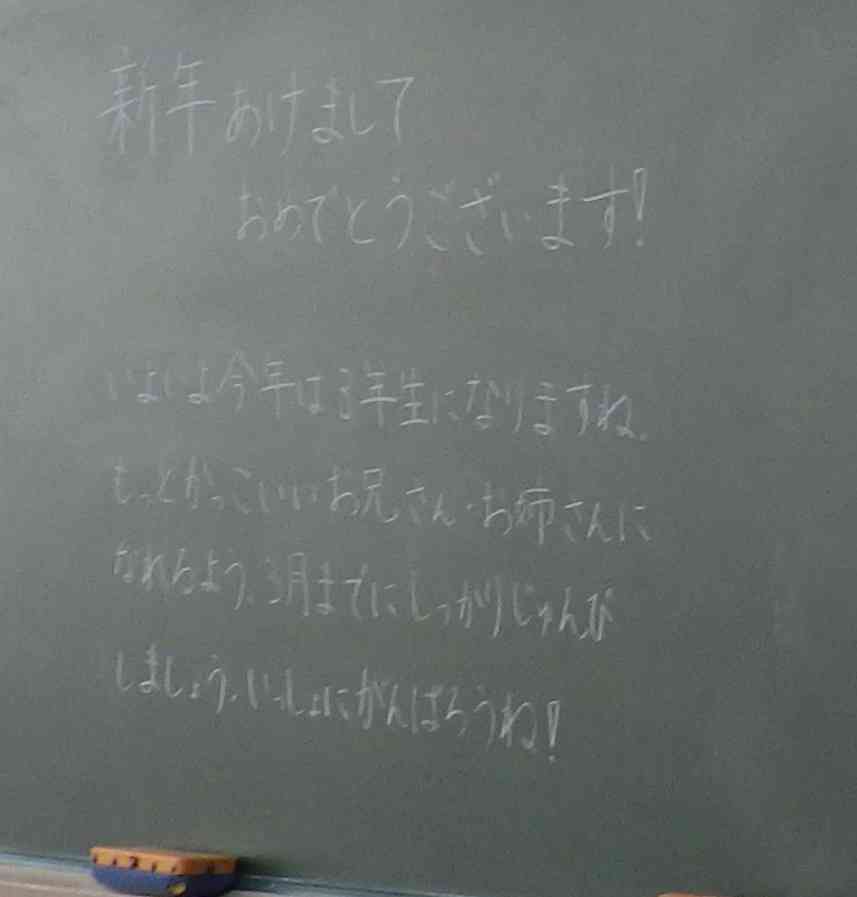 新年あけまして
おめでとうございます!
いよいよ今年は3年生になりますね。
もっとかっこいいお兄さん・お姉さんに
なれるよう、3月までにしっかりじゅんび
しましょう。いっしょにがんばろうね!